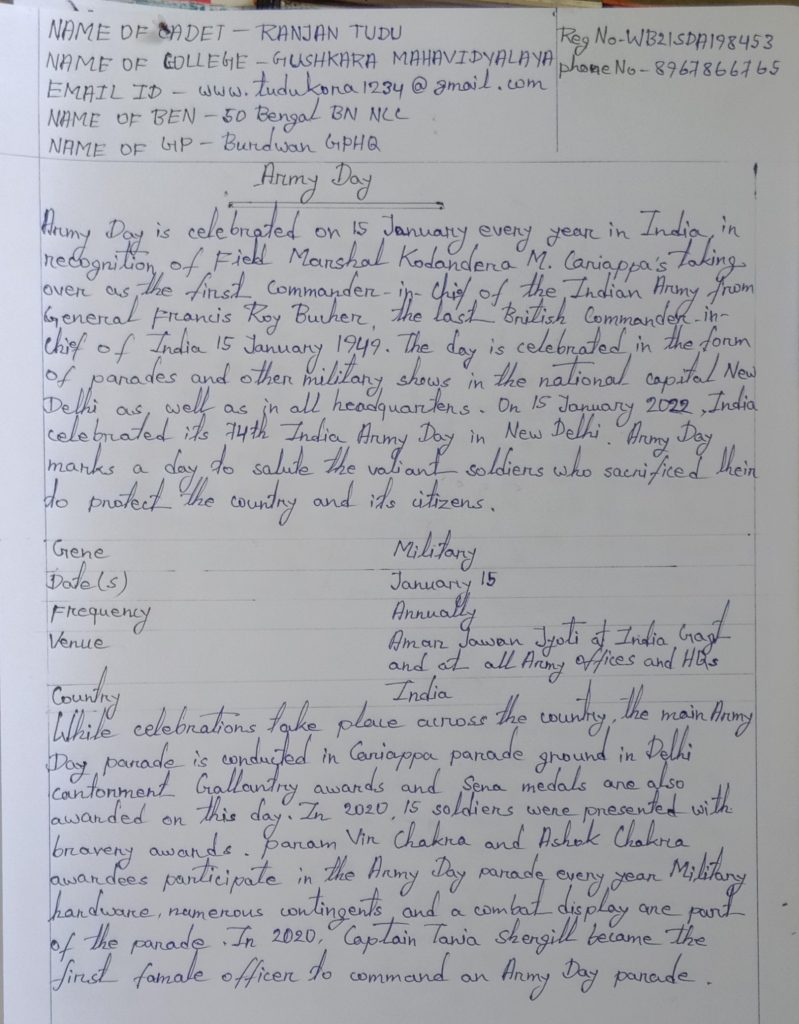 NAME OF CADET - RANJAN TUDU
NAME OF COLLEGE - GUSHKARA MAHAVIDYALAYA
EMAIL ID - www.tudukona1234@gmail.com
NAME OF BEN - 50 Bengal BN NCC
NAME OF GP - Burdwan GPHQ
Reg No-WB21SDA198453
phone No - 8967866765
Army Day
Army Day is celebrated on 15 January every year in India, in
recognition of Field Marshal Kodandera M. Cariappa's taking
over as the first Commander-in-Chief of the Indian Army from
General Francis Roy Bucher, the last British Commander-in-
Chief of India 15 January 1949. The day is celebrated in the form
of parades and other military shows in the national capital New
Delhi as well as in all headquarters. On 15 January 2022, India
celebrated its 74th India Army Day in New Delhi. Army Day
marks a day to salute the valiant soldiers who sacrificed their
to protect the country and its citizens.
Gene Military
Date(s) January 15
Frequency Annually
Venue Amar Jawan Jyoti at India Gagt
and at all Army offices and HQs
Country India
While celebrations take place across the country, the main Army
Day parade is conducted in Cariappa parade ground in Delhi
cantonment Gallantry awards and Sena medals are also
awarded on this day. In 2020, 15 soldiers were presented with
bravery awards. Param Vir Chakra and Ashok Chakra
awardees participate in the Army Day parade every year Military
hardware, numerous contingents and a combat display are part
of the parade. In 2020, Captain Tania Shergill became the
first famale officer to command an Army Day parade.